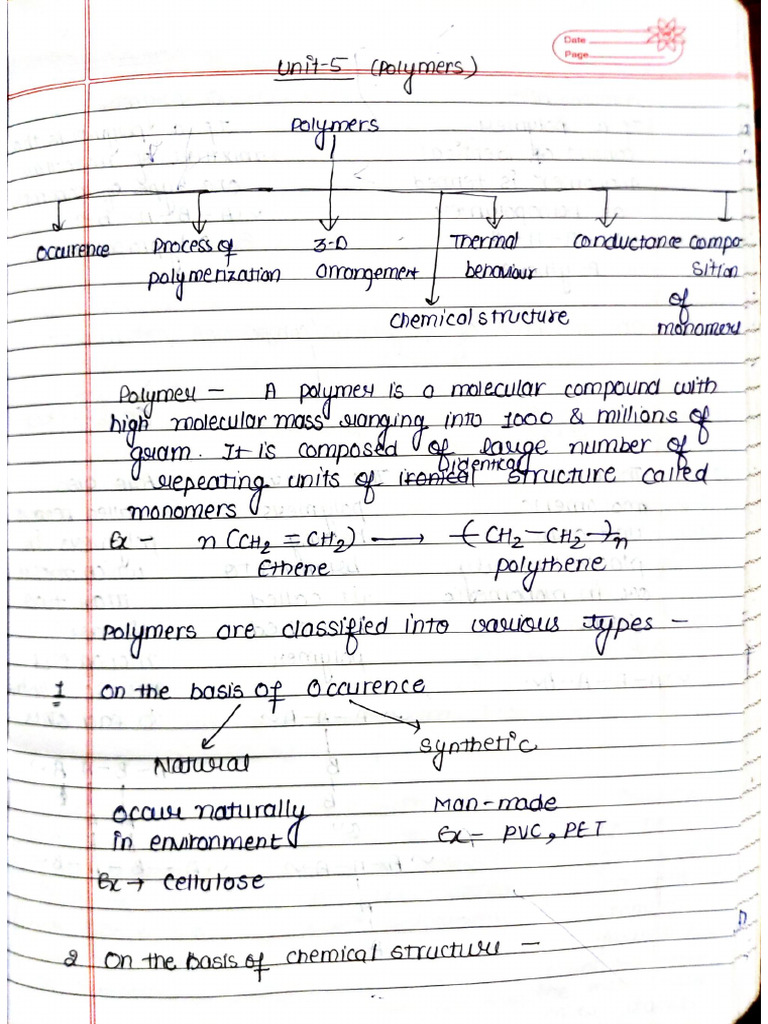 Date
Page
Unit-5 (Polymers)
Polymers
Occurence Process of 3-D Thermal Conductance Compo-
polymerization arrangement behaviour sition
of
Chemical structure monomers
Polymer - A polymer is a molecular compound with
high molecular mass ranging into 1000 & millions of
gram. It is composed of large number of
identical
repeating units of ironical structure called
monomers
Ex - n (CH2 = CH2) ⟶ -(CH2-CH2-)n
Ethene polythene
Polymers are classified into various types -
1 On the basis of Occurence
Natural Synthetic
Occur naturally Man-made
in environment Ex- PVC, PET
Ex → Cellulose
2 On the Basis of chemical structure -